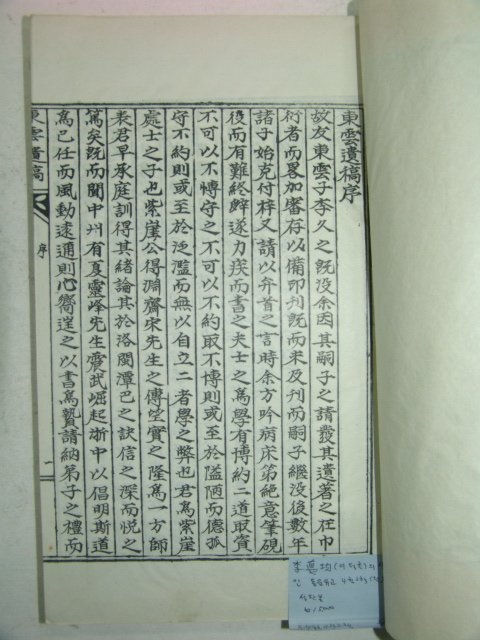 東雲遺稿序
故友東雲子李久之旣没余因其嗣子之請發其遺著之在巾
衍者而畧加審存以備卽刊旣而未及刊而嗣子繼没後數年
諸子始克付梓又請以弁首之言時余方吟病床第絶意筆硯
後而有難終辭遂力疾而書之夫士之爲學有博約二道取資
不可以不博守之不可以不約取不博則或至於隘陋而德孤
守不約則或至於泛濫而無以自立二者學之弊也君爲紫崖
處士之子也紫崖公得淵齋宋先生之傳望實之隆爲一方師
表君早承庭訓得其緒論其於洛閩潭巴之訣信之深而悅之
篤矣旣而聞中州有夏靈峰先生震武崛起浙中以倡明斯道
爲已任而風動逺通則心嚮𨓏之以書爲贄請納弟子之禮而
東雲遺稿
序
一
李
均